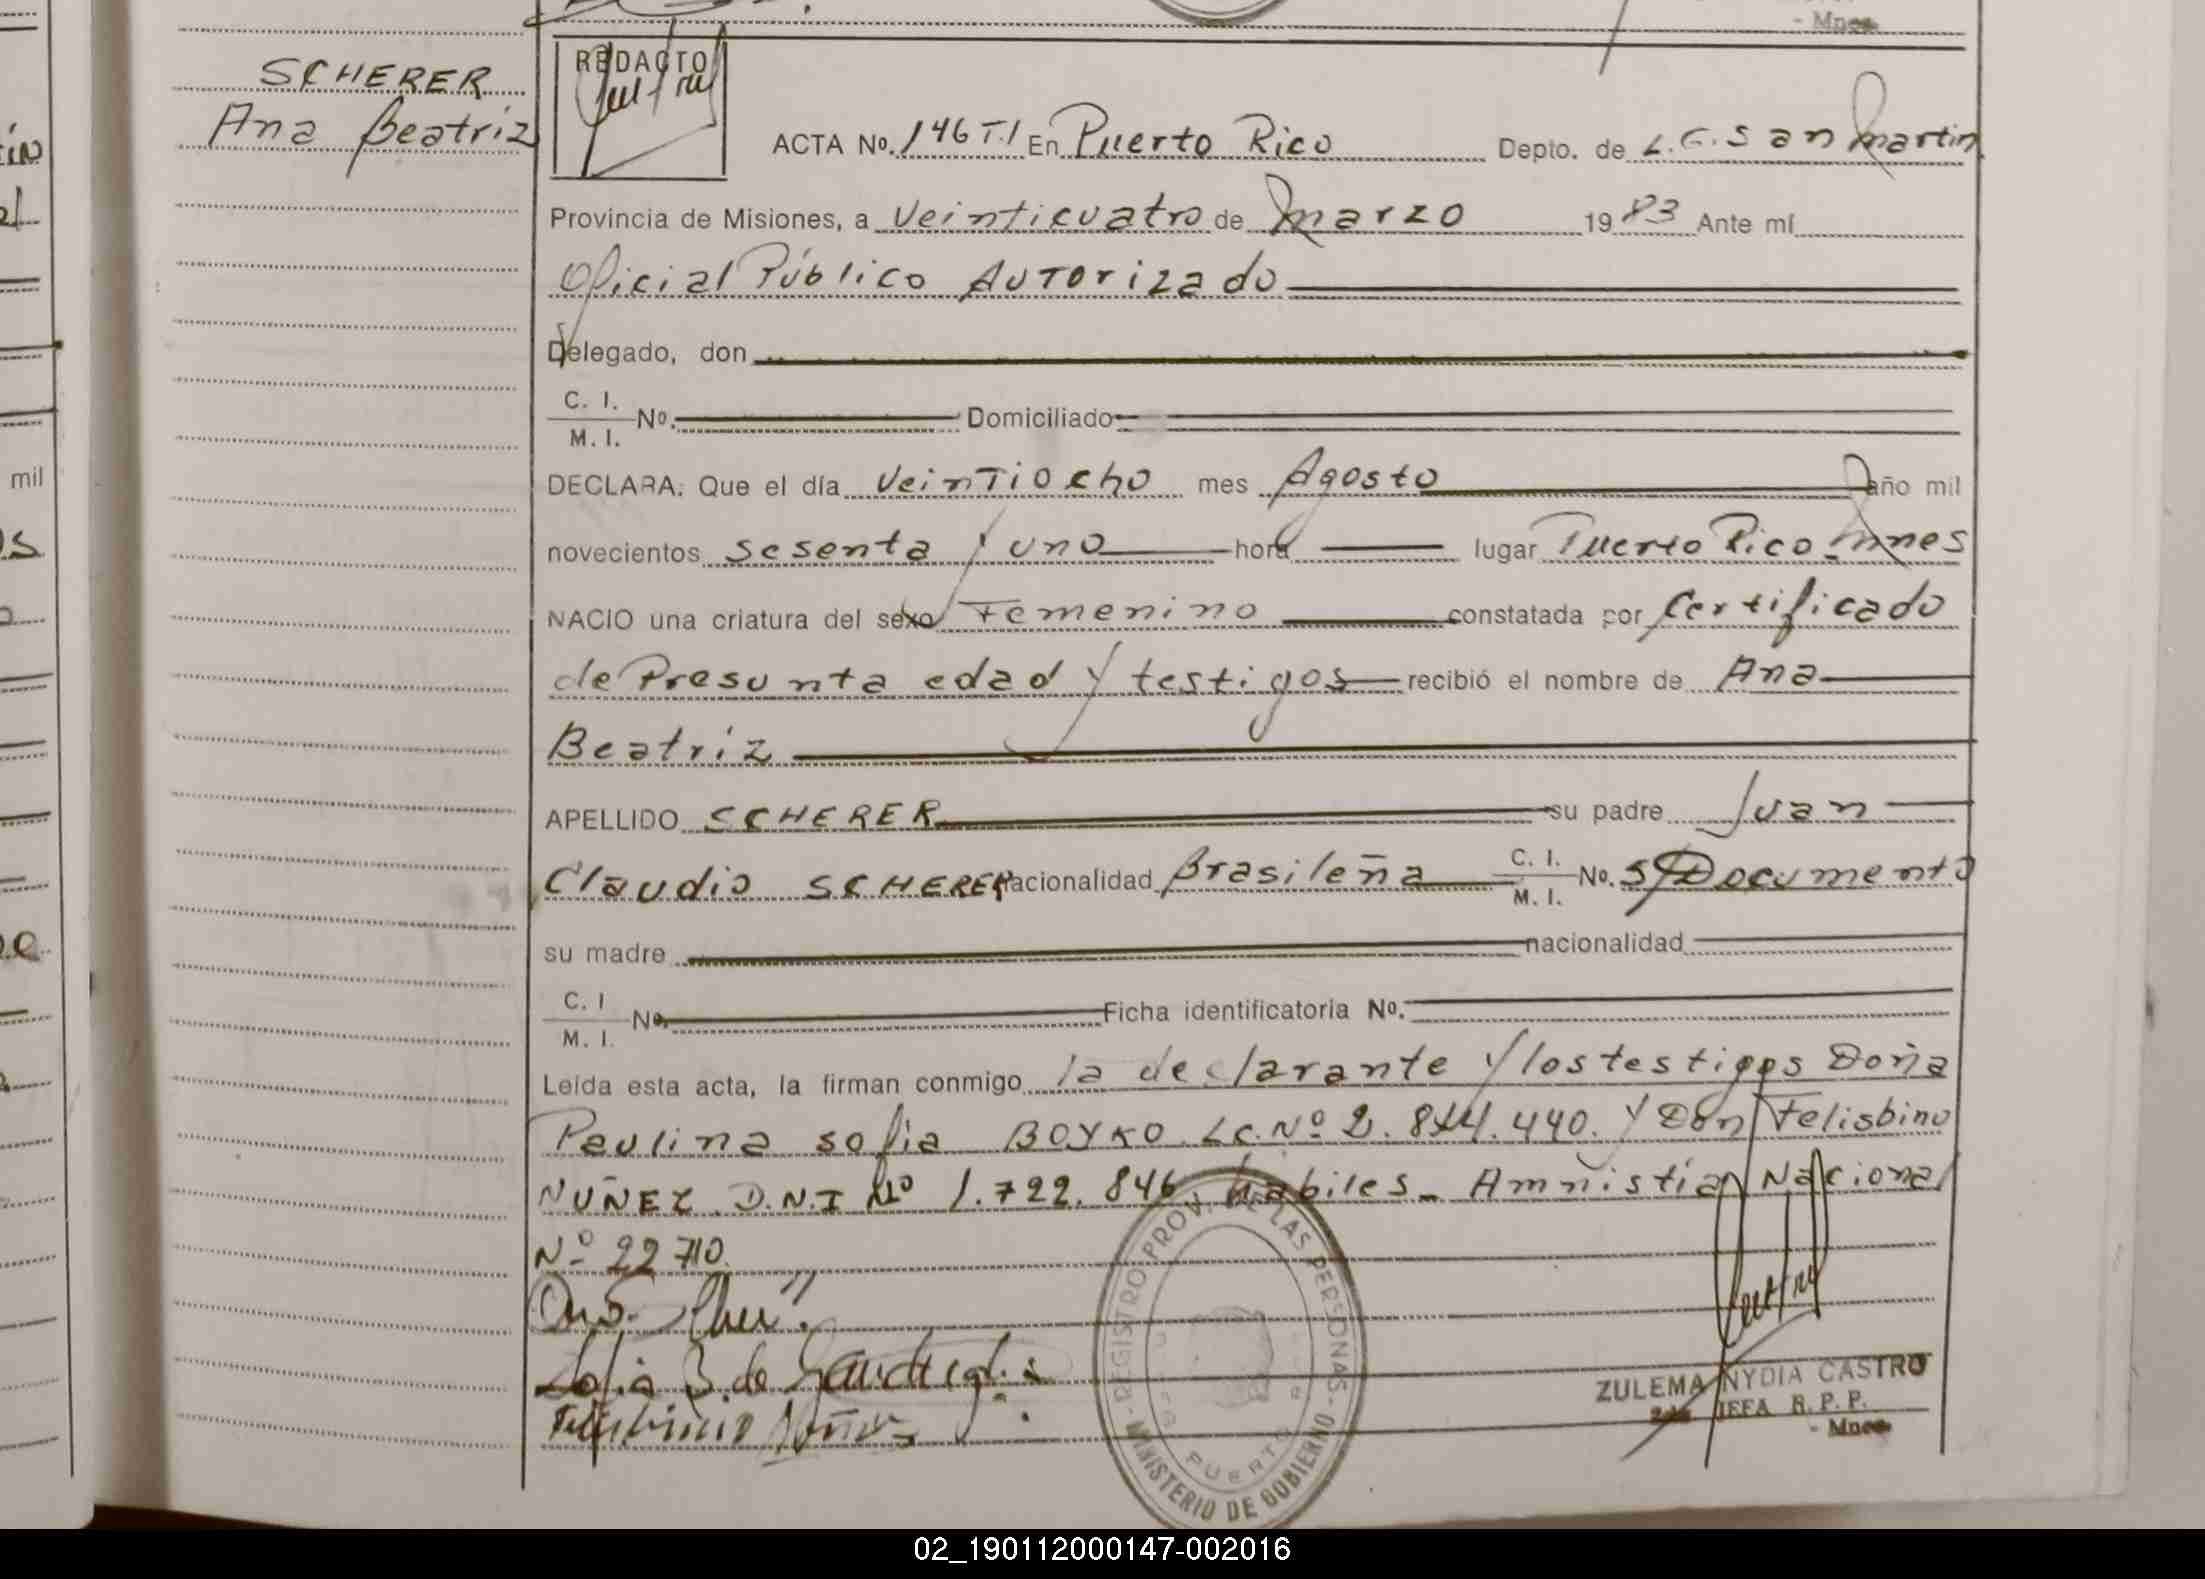 - Mnes
SCHERER
Ana Beatriz
REDACTO
ACTA No. 146 T.I En Puerto Rico Depto. de L.G. San Martin
Provincia de Misiones, a Veinticuatro de Marzo 1983 Ante mí
Oficial Público Autorizado
Delegado, don
C. I.
M. I. No. Domiciliado
DECLARA: Que el día Veintiocho mes Agosto año mil
novecientos sesenta y uno hora lugar Puerto Rico - Mnes
NACIO una criatura del sexo Femenino constatada por Certificado
de Presunta edad y testigos recibió el nombre de Ana
Beatriz
APELLIDO SCHERER su padre Juan
Claudio SCHERER nacionalidad Brasileña C. I. M. I. No. S/Documento
su madre nacionalidad
C. I
M. I. No. Ficha identificatoria No.
Leída esta acta, la firman conmigo la declarante y los testigos Doña
Paulina Sofia BOYKO L.C. Nº 2. .440. y Don Felisbino
NUÑEZ D.N.I Nº 1.722.846 hábiles - Amnistía Nacional
Nº 22710.
Sofia B. de
Felisbino Núñez
REGISTRO PROV. DE LAS PERSONAS
MINISTERIO DE GOBIERNO
PUERTO
ZULEMA NYDIA CASTRO
JEFA R. P. P.
- Mnes
mil
02_190112000147-002016